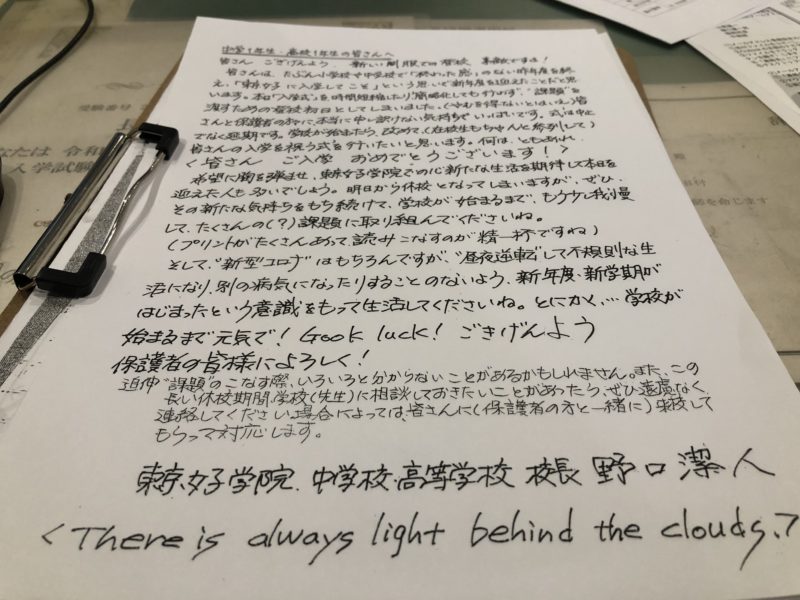 中学1年生・高校1年生の皆さんへ
皆さん ごきげんよう 新しい制服での登校 素敵ですよ!
皆さんは、たぶん小学校や中学校で「終わった感」のない昨年度を終
え、「東女に入学してこと」という思いで新年度を迎えたことだと思
います。本日「入学式」を時間短縮したり簡略化しても行わず、"課題"を
渡すための登校初日としてしまいました。(やむを得ないとはいえ)皆
さんと保護者の方々に、本当に申し訳けない気持ちでいっぱいです。式は中止
でなく延期です。学校が始まったら、改めて、(在校生もちゃんと参列して)
皆さんの入学を祝う式を行いたいと思います。何は、ともあれ、
〈皆さん ご入学 おめでとうございます!〉
希望に胸を弾ませ、東京女子学院でのに新たな生活を期待して本日を
迎えた人も多いでしょう。明日から休校となってしまいますが、ぜひ、
その新たな気持ちをもち続けて、学校が始まるまで、もう少し我慢
して、たくさんの(?)課題に取り組んでくださいね。
(プリントがたくさんあって、読みこなすのが精一杯ですね)
そして、"新型コロナ"はもちろんですが、"昼夜逆転"して不規則な生
活になり、別の病気になったりすることのないよう、新年度・新学期が
はじまったという意識をもって生活してくださいね。とにかく、… 学校が
始まるまで元気で! Gook luck! ごきげんよう
保護者の皆様によろしく!
追伸 "課題"のこなす際、いろいろと分からないことがあるかもしれません。また、この
長い休校期間、学校(先生)に相談しておきたいことがあったら、ぜひ遠慮なく
連絡してください。場合によっては、皆さんに(保護者の方と一緒に)来校して
もらって対応します。
東京女子学院 中学校・高等学校 校長 野口潔人
<There is always light behind the clouds.>